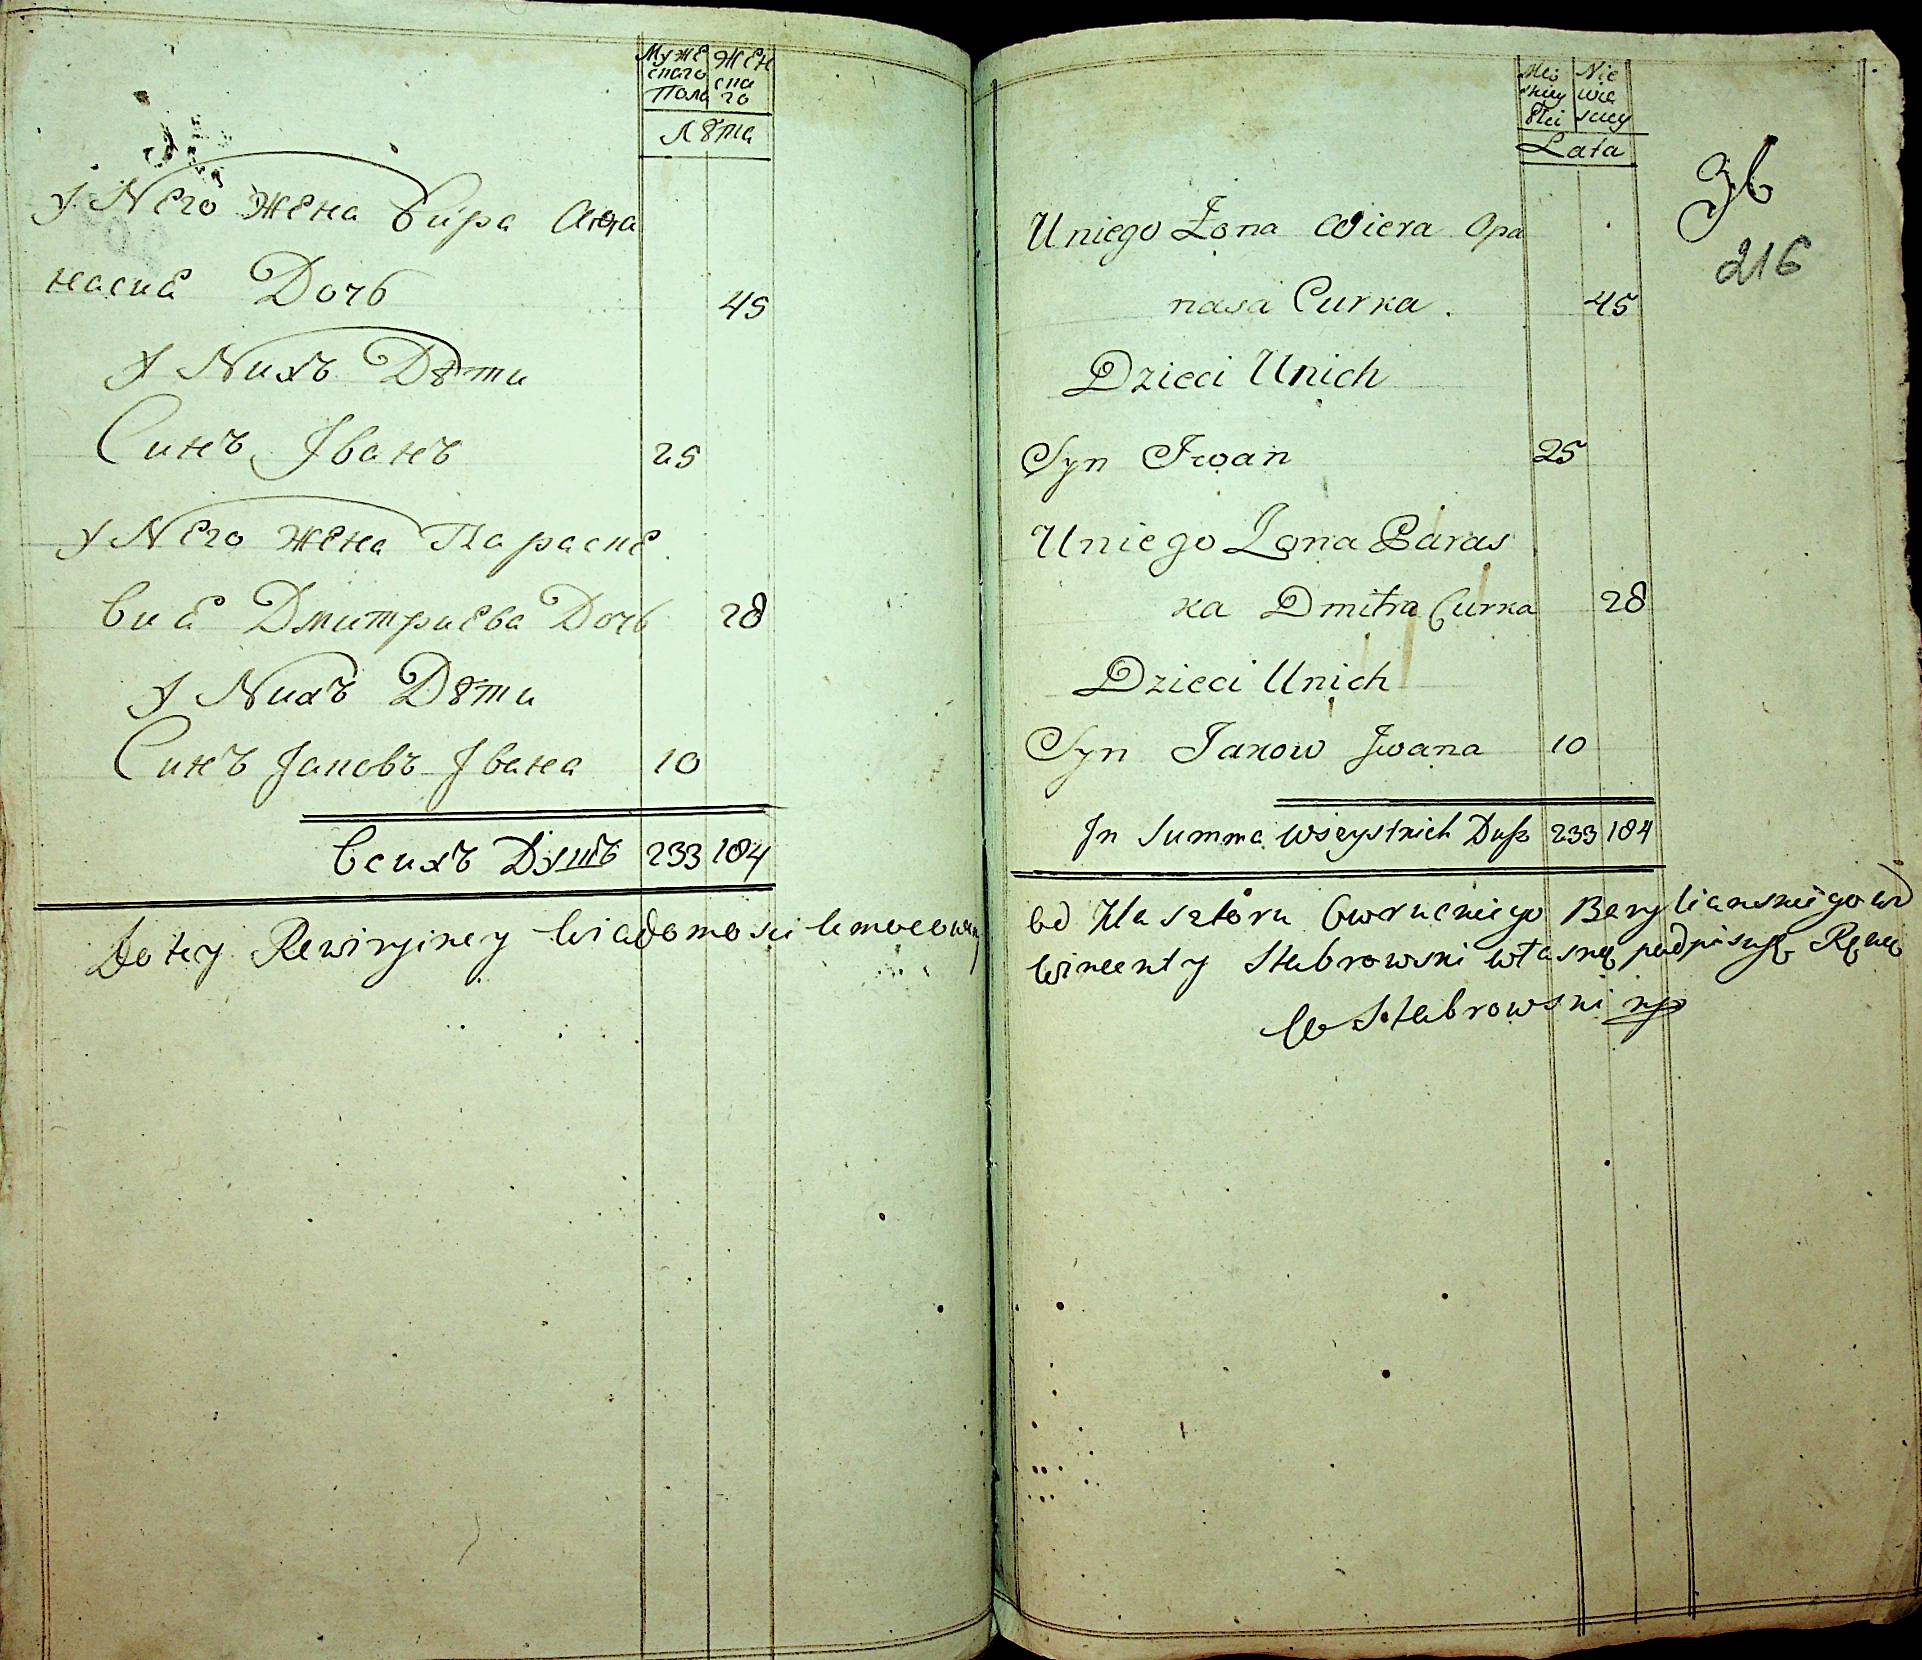 Муже
скаго
Пола
Жен
ска
го
Лѣта
У Него Жена Вира Аѳа
насиѣ Дочь 45
У Нихъ Дѣти
Синъ Іванъ 25
У Него Жена Параске
виѣ Дмитриева Дочь 28
У Нихъ Дѣти
Синъ Іаковъ Івана 10
Всихъ Душъ 233 184
Do tey Rewizyiney Wiadomosci Umocowany
Męs
skiey
Płci
Nie
wie
sciey
Lata
36
216
Uniego Żona Wiera Opa
nasa Curka . 45
Dzieci Unich
Syn Iwan 25
Uniego Żona Paras
ka Dmitra Curka 28
Dzieci Unich
Syn Jakow Iwana 10
In Summa wszystkich Dusz 233 184
od Klasztoru Owruckiego Bazyliańskiego
Wincenty Stabrowski własną podpisuję Ręką
W Stabrowski mp